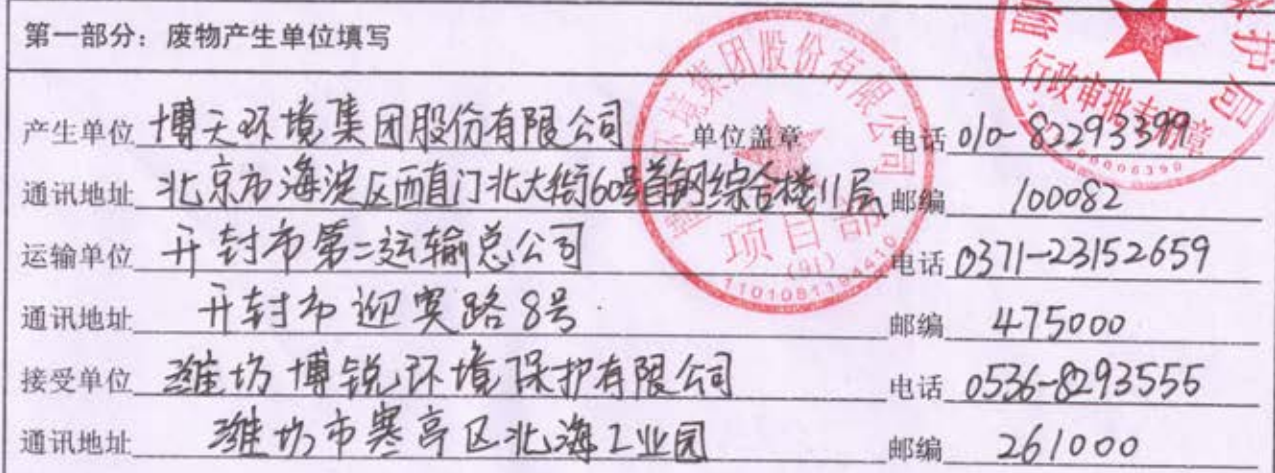 第一部分：废物产生单位填写
产生单位 博天环境集团股份有限公司 单位盖章 电话 010-82293399
通讯地址 北京市海淀区西直门北大街60号首钢综合楼11层 邮编 100082
运输单位 开封市第二运输总公司 电话 0371-23152659
通讯地址 开封市迎宾路8号 邮编 475000
接受单位 潍坊博锐环境保护有限公司 电话 0536-8293555
通讯地址 潍坊市寒亭区北海工业园 邮编 261000
环境集团股份有限公司
项目部
(91)
行政审批专用章
护局